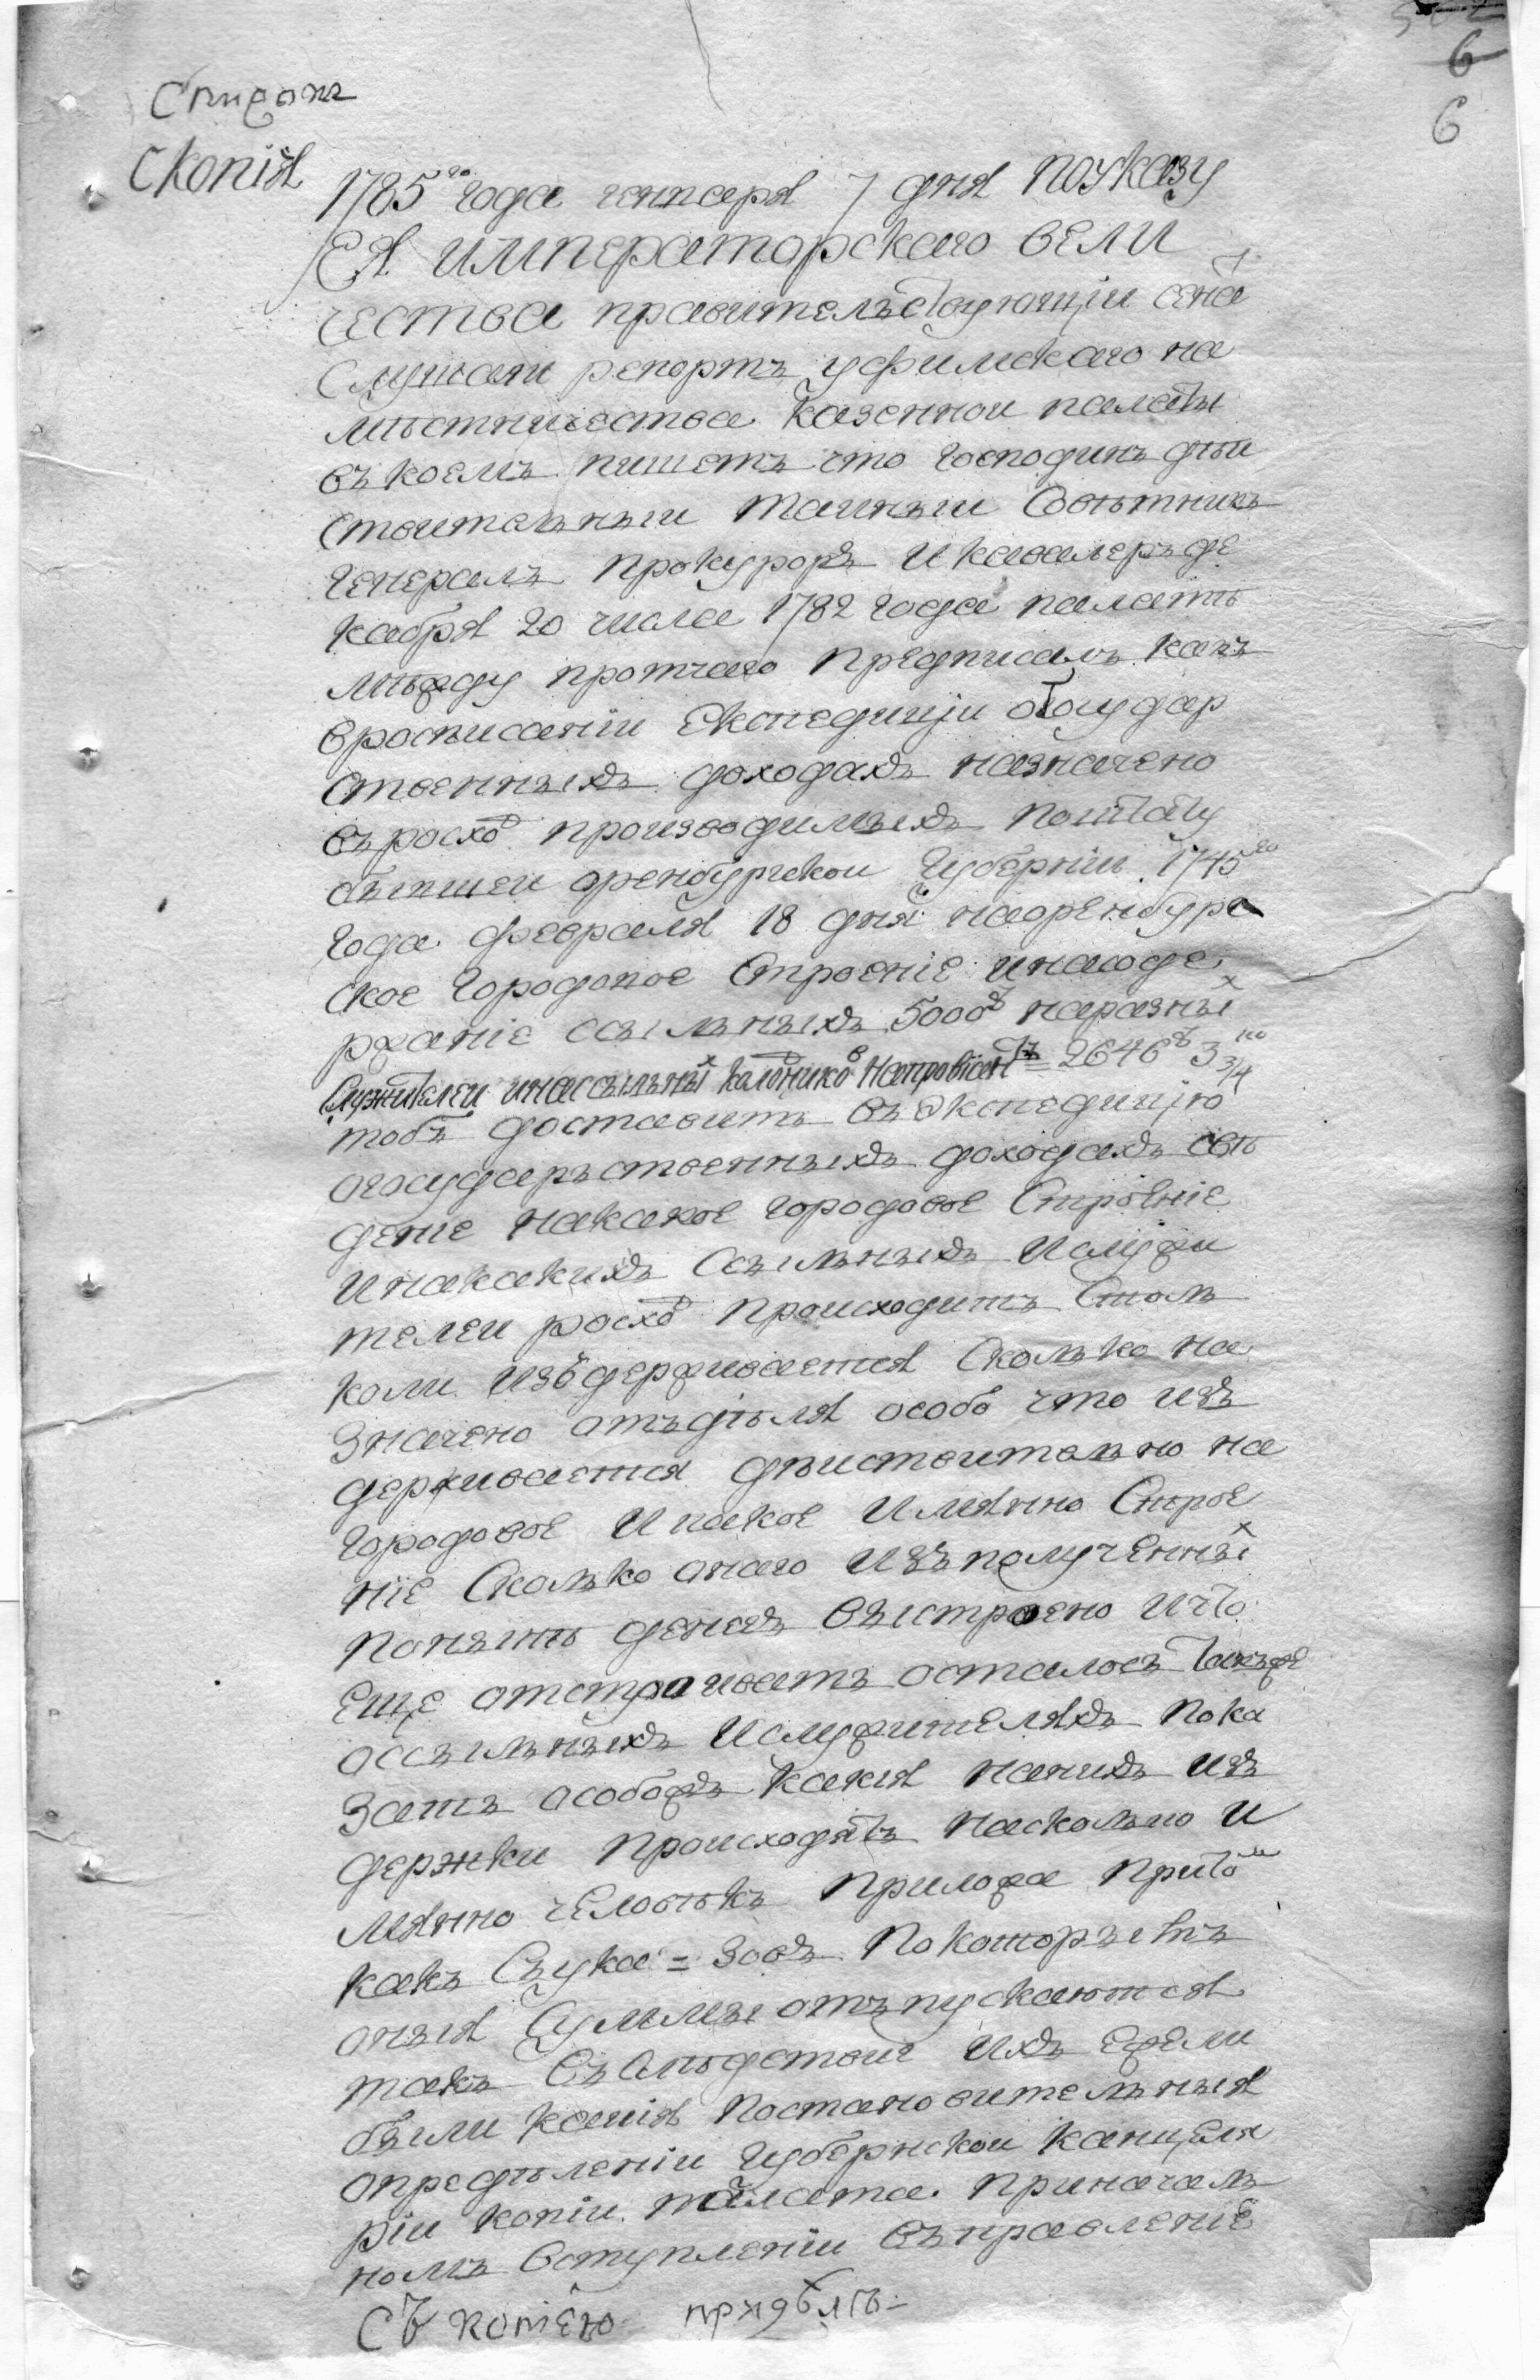 6
6
Скопія
1785го года генваря 7 дня поуказу
ЕЯ императорскаго вели
чества правительствующіи сенат
Слушали репортъ уфимскаго на
мѣстничества казеннои палаты
въкоемъ пишетъ что господинъ дѣи
ствительныи таиныи Советникъ
генералъ прокуроръ икавалеръ де
кабря 20 числа 1782 года палатѣ
мѣжду протчаго предписалъ какъ
вросписаніи Експедиціи огосудар
ственныхъ доходахъ назначено
въросход производимыхъ поштату
бывшеи оренбургскои губерніи 1745го
года февраля 18 дня наоренбург
ское городовое Строеніе инасоде
ржаніе ссыльныхъ 5000р наразных
Служителеи инассыльных колодников напровіантъ = 2646р 3 3/4
тобъ доставить въЭкспедицію
огосударьственныхъ доходахъ свѣ
дение накакое городовое Строение
инакакихъ Ссыльныхъ ислужи
телеи росход происходитъ Столь
коли издерживается Сколько на
значено отъдѣля особо что изъ
держивается дѣиствительно на
городовое икакое имянно Строе
ніе Сколько онаго изъполученных
понынѣ денегъ выстроено ичто
еще отстроивать осталось такъже
оссыльныхъ ислужителяхъ пока
зать особожъ какія нанихъ из
держки происходятъ насколько и
мянно человѣкъ приложа притом
какъ Съука=зовъ покоторымъ
оныя Суммы отъпускаются
такъ Въслѣдствие ихъ ежели
были какія постановительныя
определеніи губернскои канцеля
ріи копіи палата приначаль
номъ вступленіи въправление
Съ копіею